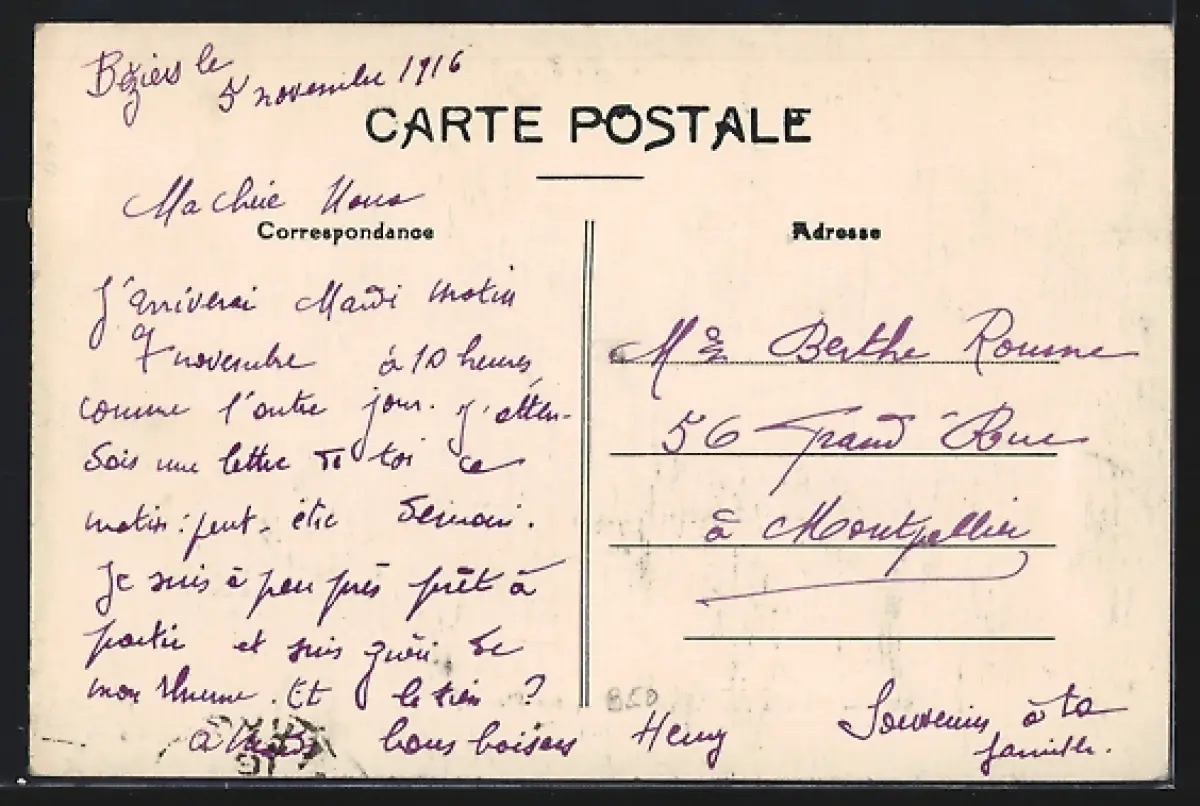 Béziers le
5 novembre 1916
CARTE POSTALE
Ma chère Nona
Correspondance
J'arriverai Mardi matin
7 novembre à 10 heures
comme l'autre jour. J'atten-
dais une lettre de toi ce
matin : peut-être demain.
Je suis à peu près prêt à
partir et suis guéri de
mon rhume. Et le tien ?
à bons baisers Henry
Adresse
Mlle Berthe Roume
56 Grand Rue
à Montpellier
850
Souvenirs à ta
famille.